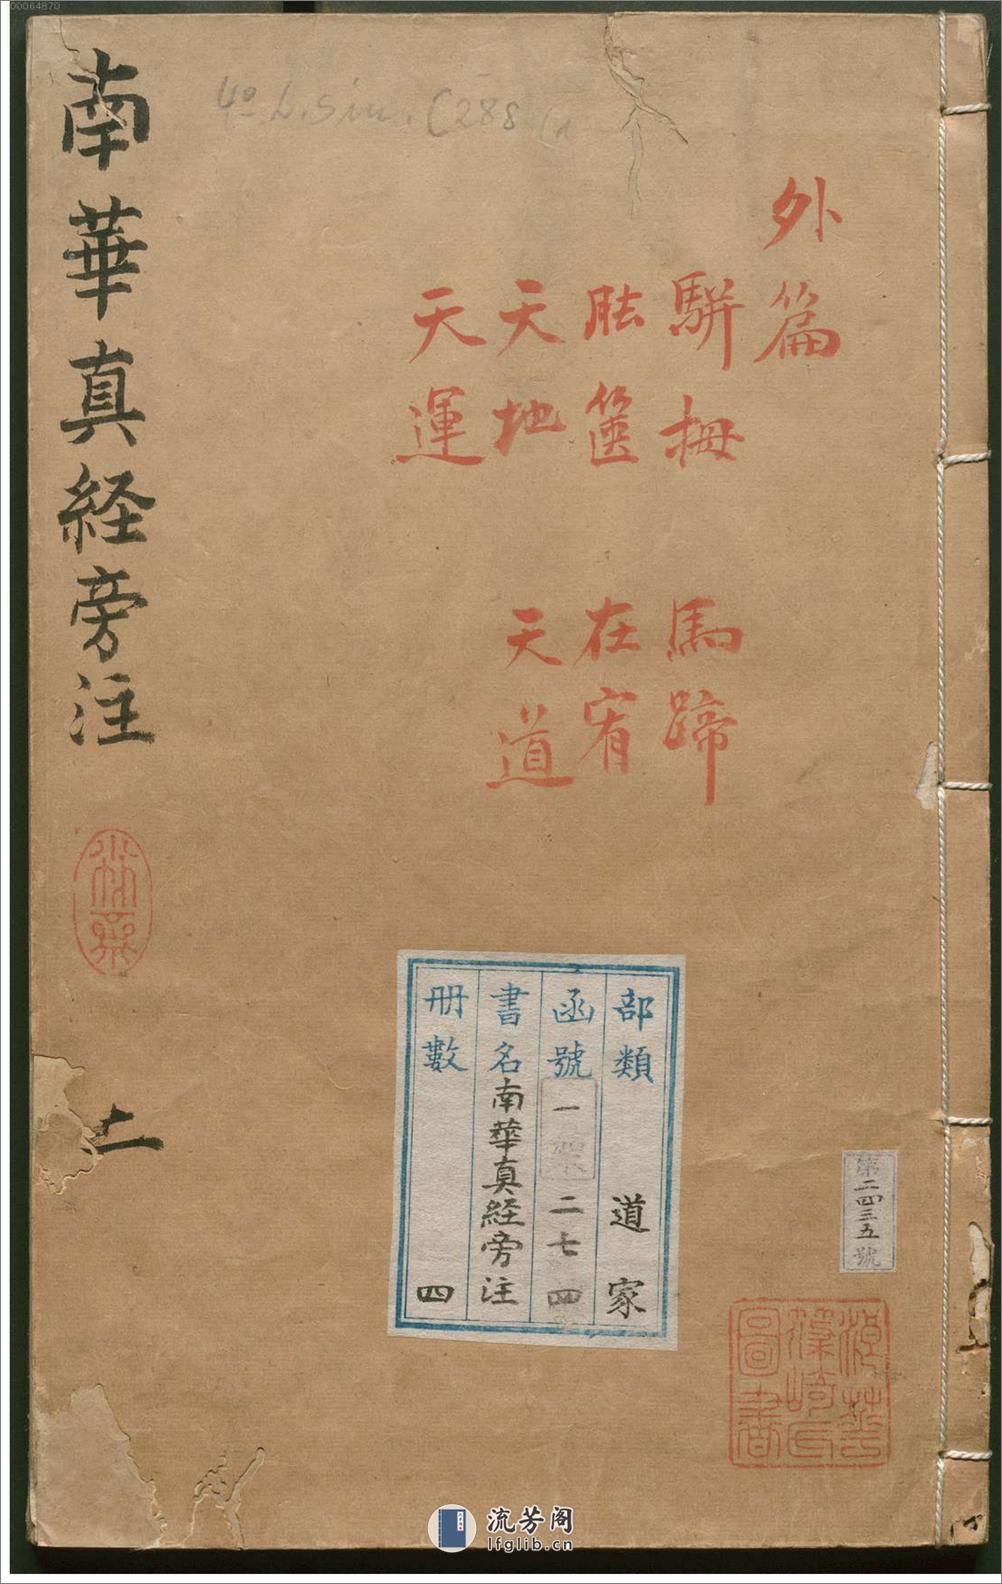 00064870
4° L. sin. C 288
外篇
駢拇 馬蹄
胠篋 在宥
天地 天道
天運
南華真経旁注
部類 道家
函號 一 二七四
書名 南華真経旁注
冊數 四
第二四三五號
圖書
流芳阁
lfglib.cn